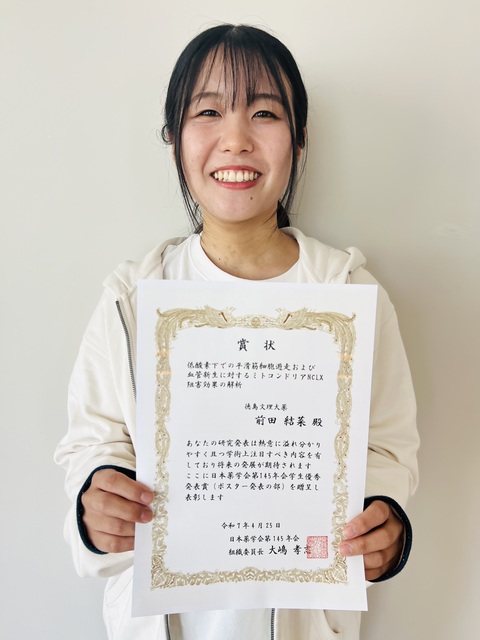 賞状
低酸素下での平滑筋細胞遊走および
血管新生に対するミトコンドリアNCLX
阻害効果の解析
徳島文理大薬
前田 結菜 殿
あなたの研究発表は熱意に溢れ分かり
やすく且つ学術上注目すべき内容を有
しており将来の発展が期待されます
ここに日本薬学会第145年会学生優秀
発表賞(ポスター発表の部)を贈呈し
表彰します
令和7年4月25日
日本薬学会第145年会
組織委員長 大嶋 孝志